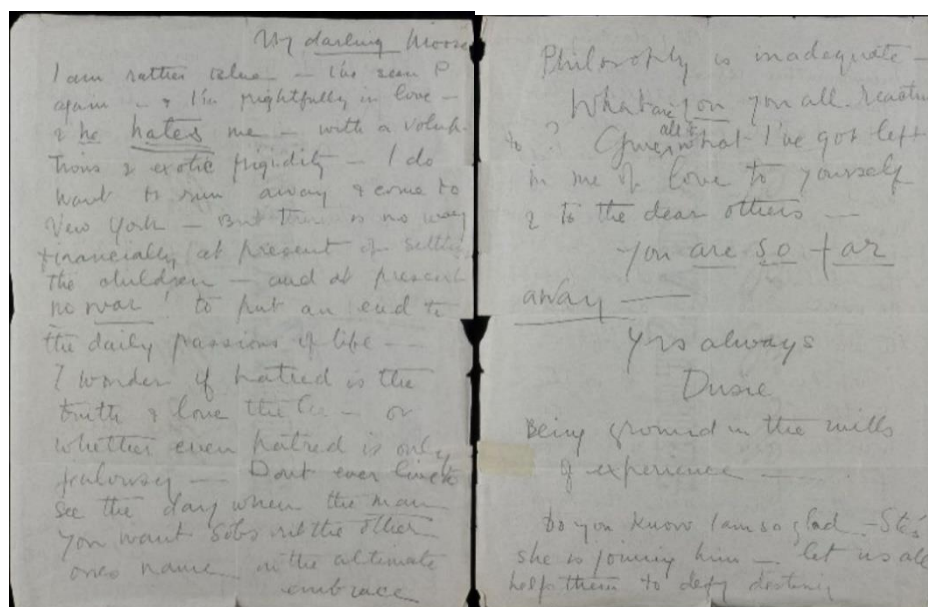 My darling Moose
I am rather blue — I've seen P
again — & I'm frightfully in love —
& he hates me — with a volup-
tious & exotic frigidity — I do
want to run away & come to
New York — But there is no way
financially at present of settling
the children — and at present
no war to put an end to
the daily passions of life —
I wonder if hatred is the
truth & love the lie — or
whether even hatred is only
jealousy — Dont ever live to
see the day when the man
you want sobs out the other
ones name in the ultimate
embrace
Philosophy is inadequate —
What are you you all reacting
to ? Give all what I've got left
in me of love to yourself
& to the dear others —
You are so far
away —
Yrs always
Dusie
Being ground in the mills
of experience —
Do you know I am so glad —
she is joining him — let us all
help them to defy destiny